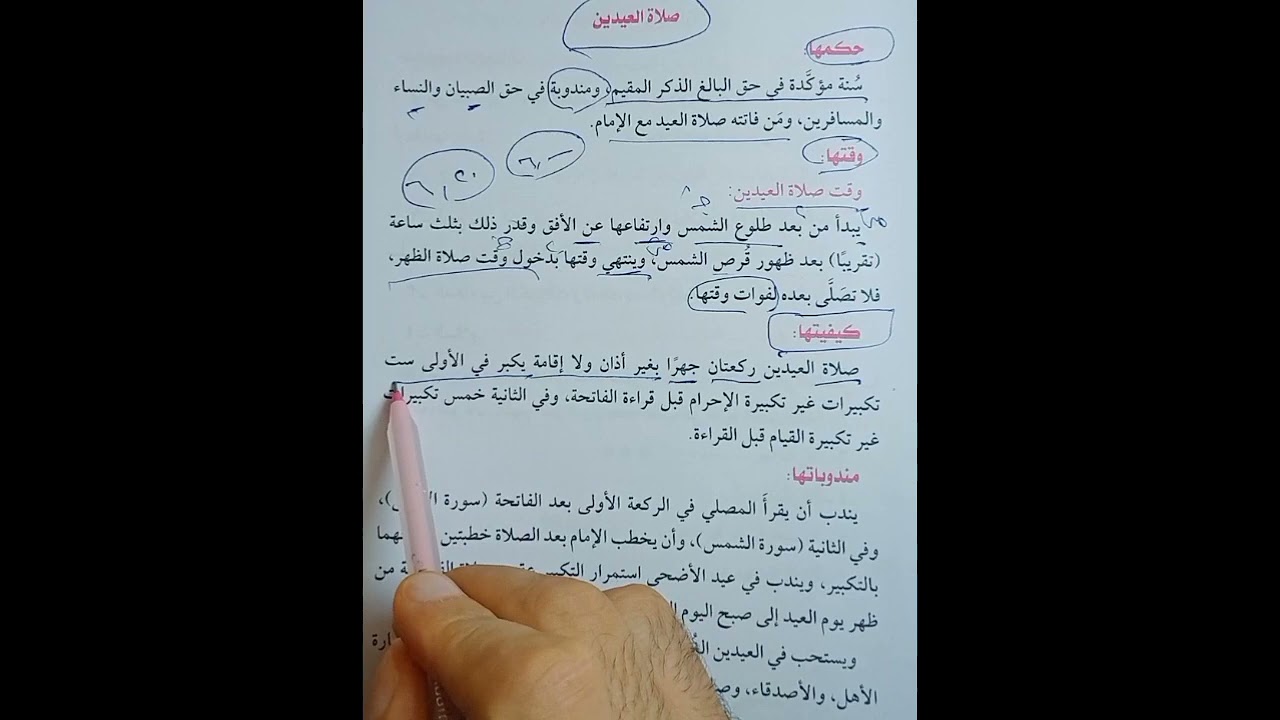 صلاة العيدين
حكمها:
سُنة مؤكَّدة في حق البالغ الذكر المقيم، ومندوبة في حق الصبيان والنساء
والمسافرين، ومَن فاتته صلاة العيد مع الإمام.
وقتها:
٦,٠٠
٦,٢٠
وقت صلاة العيدين:
يبدأ من بعد طلوع الشمس وارتفاعها عن الأفق وقدر ذلك بثلث ساعة
(تقريبًا) بعد ظهور قُرص الشمس، وينتهي وقتها بدخول وقت صلاة الظهر،
فلا تصَلَّى بعده لفوات وقتها.
كيفيتها:
صلاة العيدين ركعتان جهرًا بغير أذان ولا إقامة يكبر في الأولى ست
تكبيرات غير تكبيرة الإحرام قبل قراءة الفاتحة، وفي الثانية خمس تكبيرات
غير تكبيرة القيام قبل القراءة.
مندوباتها:
يندب أن يقرأَ المصلي في الركعة الأولى بعد الفاتحة (سورة
وفي الثانية (سورة الشمس)، وأن يخطب الإمام بعد الصلاة خطبتين
بالتكبير، ويندب في عيد الأضحى استمرار التكبير من
ظهر يوم العيد إلى صبح اليوم
ويستحب في العيدين
الأهل، والأصدقاء،